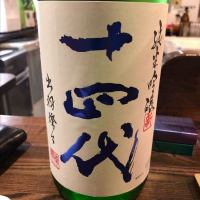 純米吟醸
十四代
出羽燦々